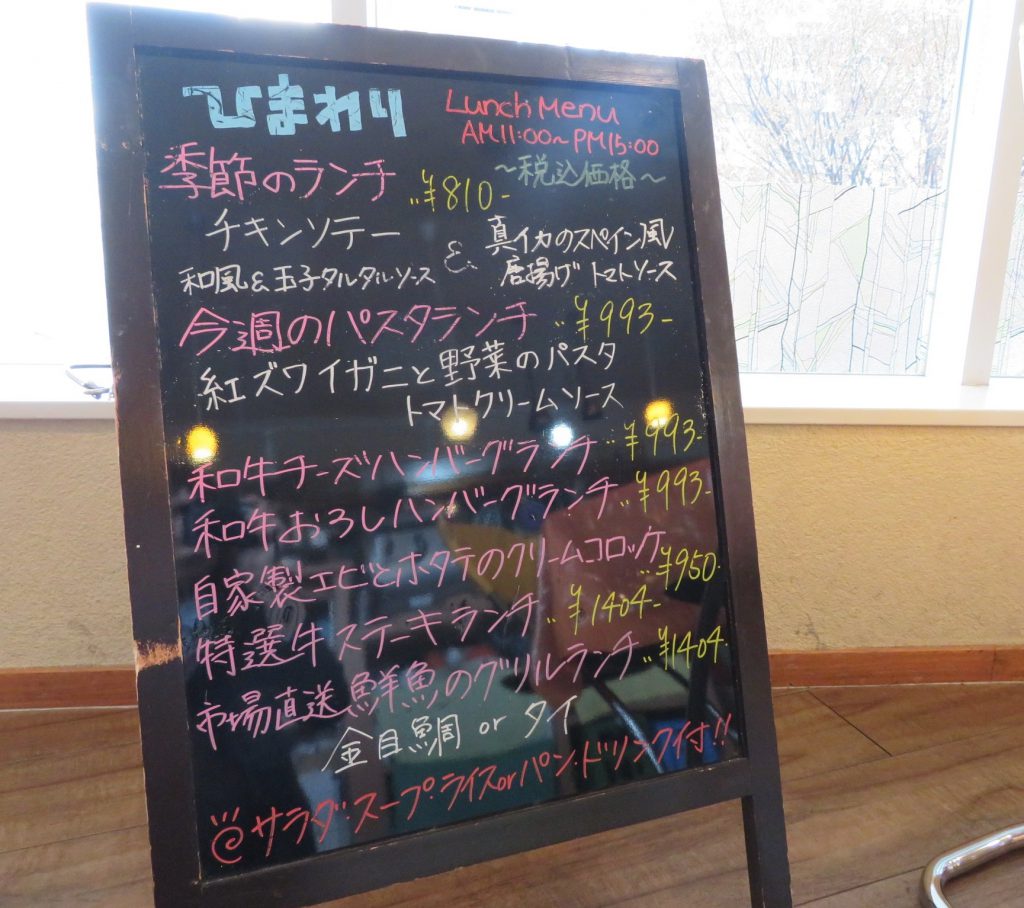 ひまわり
Lunch Menu
AM11:00~PM15:00
~税込価格~
季節のランチ ‥¥810-
チキンソテー
和風&玉子タルタルソース
&
真イカのスペイン風
唐揚げ トマトソース
今週のパスタランチ ‥¥993-
紅ズワイガニと野菜のパスタ
トマトクリームソース
和牛チーズハンバーグランチ ‥¥993-
和牛おろしハンバーグランチ ‥¥993-
自家製エビとホタテのクリームコロッケ
‥¥950-
特選牛ステーキランチ ‥¥1404-
市場直送鮮魚のグリルランチ ‥¥1404-
金目鯛 or タイ
サラダ・スープ・ライスorパン・ドリンク付!!